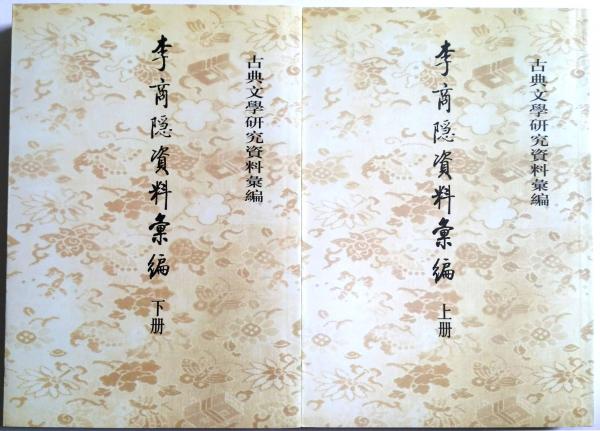 古典文學研究資料彙編
李商隐資料彙編
上册
古典文學研究資料彙編
李商隐資料彙編
下册